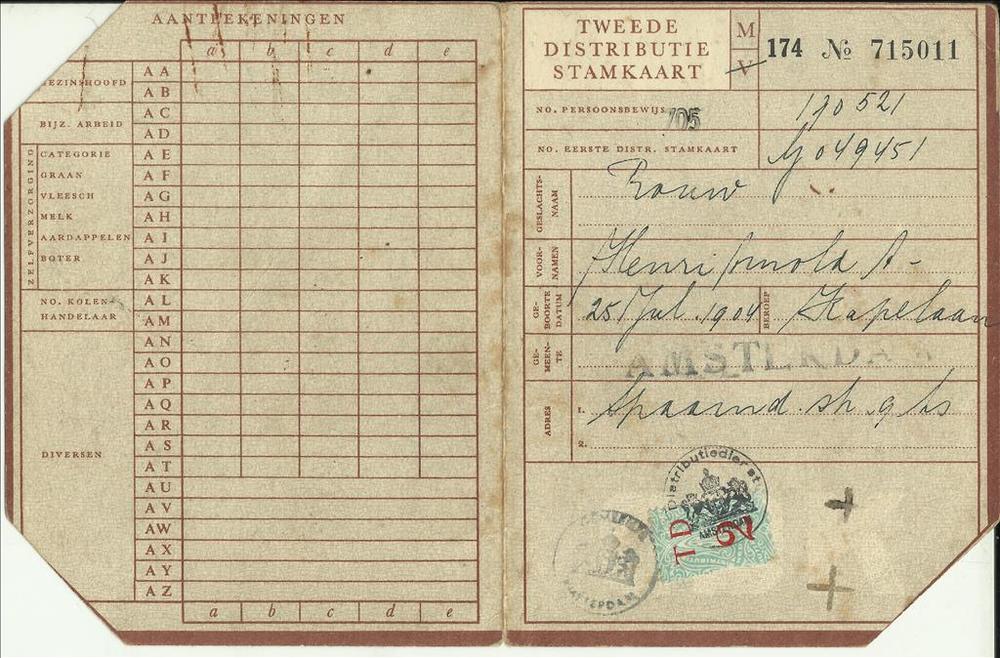 AANTEEKENINGEN
a b c d e
GEZINSHOOFD
AA
AB
BIJZ. ARBEID
AC
AD
ZELFVERZORGING
CATEGORIE AE
GRAAN AF
VLEESCH AG
MELK AH
AARDAPPELEN AI
BOTER AJ
AK
NO. KOLEN-
HANDELAAR
AL
AM
DIVERSEN
AN
AO
AP
AQ
AR
AS
AT
AU
AV
AW
AX
AY
AZ
a b c d e
TWEEDE
DISTRIBUTIE
STAMKAART
M
V
174 № 715011
NO. PERSOONSBEWIJS
105
190521
NO. EERSTE DISTR. STAMKAART
049451
GESLACHTS-
NAAM
Rouw
VOOR-
NAMEN
Henri Arnold A-
GE-
BOORTE
DATUM
25 Jul. 1904
BEROEP
Kapelaan
GE-
MEEN-
TE
AMSTERDAM
ADRES
1. Spaarnd. str. 9 hs
2.
Distributiedienst
AMSTERDAM
TD
2
AMSTERDAM